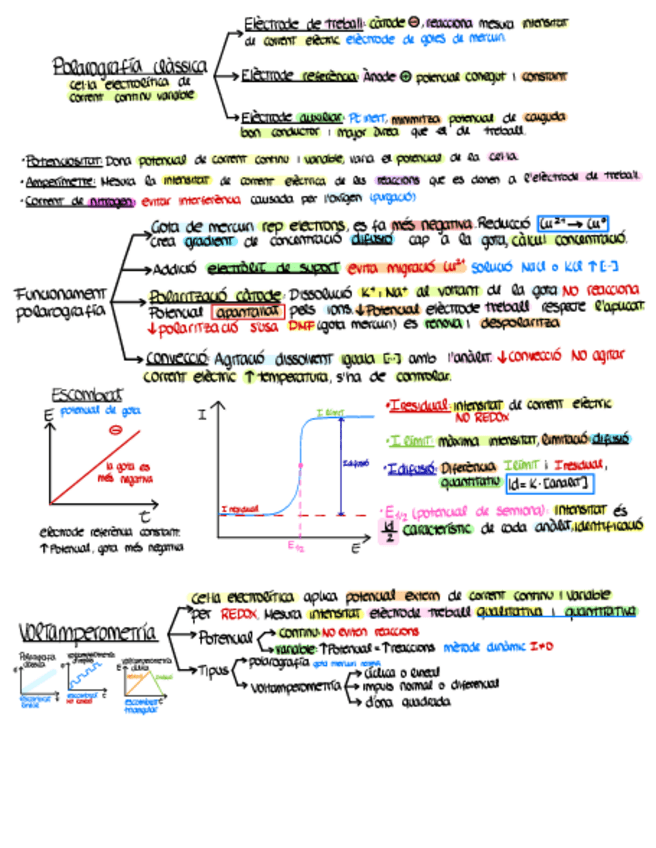 Elèctrode de treball: càtode ⊖, reacciona mesura intensitat
de corrent elèctric elèctrode de gotes de mercuri.
Polarografía clàssica
cel·la electrolítica de
corrent continu variable
Elèctrode referència: Ànode ⊕ potencial conegut i constant
Elèctrode auxiliar: Pt inert, minimitza potencial de caiguda
bon conductor i major àrea que el de treball.
·Potenciostat: Dona potencial de corrent continu i variable, varia el potencial de la cel·la.
·Amperímetre: Mesura la intensitat de corrent elèctrica de les reaccions que es donen a l'elèctrode de treball.
·Corrent de nitrogen: evitar interferència causada per l'oxigen (purgació)
Gota de mercuri rep electrons, es fa més negativa. Reducció Cu²⁺ → Cu⁰
Crea gradient de concentració difusió cap a la gota, càlcul concentració.
Addició electròlit de suport evita migració Cu²⁺ solució NaCl o KCl ↑[··]
Funcionament
polarografía
Polarització càtode: Dissolució K⁺ i Na⁺ al voltant de la gota NO reacciona
Potencial apantallat pels ions. ↓Potencial elèctrode treball respecte l'aplicat.
↓polarització s'usa DMF (gota mercuri) es renova i despolaritza
Convecció: Agitació dissolvent iguala [··] amb l'anàlit. ↓convecció NO agitar
Corrent elèctric ↑ temperatura, s'ha de controlar.
Escombrat
E potencial de gota
⊖
la gota és
més negativa
t
elèctrode referència constant.
↑Potencial, gota més negativa
I
I límit
I difusió
I residual
E1/2
E
·I residual: intensitat de corrent elèctric
NO REDOX
·I límit: màxima intensitat, limitació difusió
·I difusió: Diferència I límit i I residual,
quantitatiu Id = K·[anàlit]
·E1/2 (potencial de semiona): intensitat és
Id/2 característic de cada anàlit, identificació
Cel·la electrolítica aplica potencial extern de corrent continu i variable
per REDOX. Mesura intensitat elèctrode treball qualitativa i quantitativa
Voltamperometría
Potencial
continu: NO eviten reaccions
variable: ↑Potencial = ↑reaccions mètode dinàmic I≠0
Tipus
polarografía gota mercuri
voltamperometría
cíclica o lineal
impuls normal o diferencial
d'ona quadrada
Polarografía
clàssica
escombrat
lineal
escombrat
NO lineal
voltamperometría
cíclica
escombrat
triangular